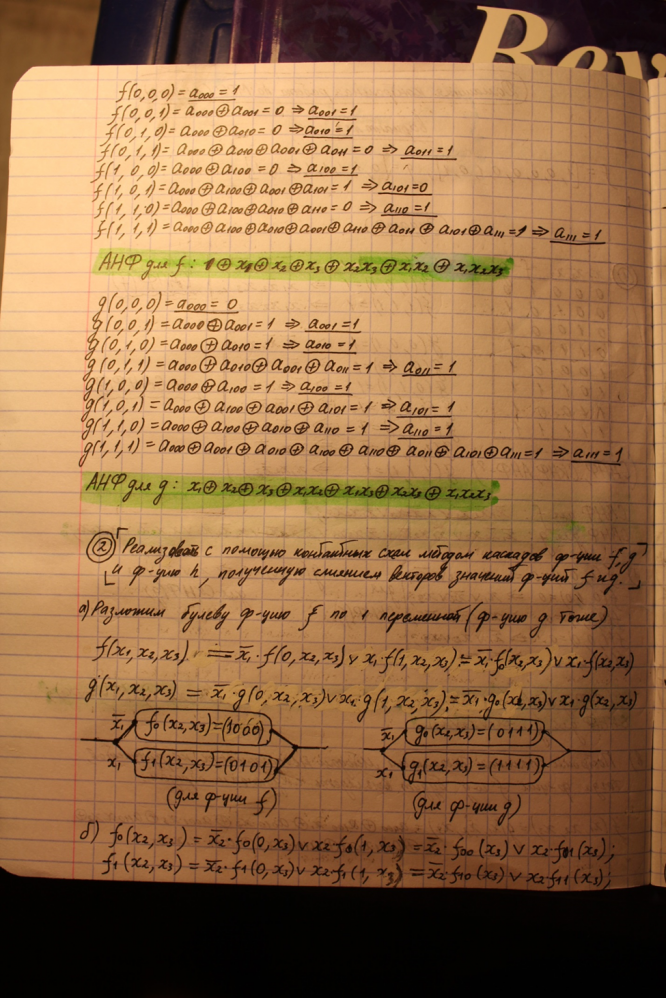 Rev
f(0,0,0) = a₀₀₀ = 1
f(0,0,1) = a₀₀₀ ⊕ a₀₀₁ = 0 ⇒ a₀₀₁ = 1
f(0,1,0) = a₀₀₀ ⊕ a₀₁₀ = 0 ⇒ a₀₁₀ = 1
f(0,1,1) = a₀₀₀ ⊕ a₀₁₀ ⊕ a₀₀₁ ⊕ a₀₁₁ = 0 ⇒ a₀₁₁ = 1
f(1,0,0) = a₀₀₀ ⊕ a₁₀₀ = 0 ⇒ a₁₀₀ = 1
f(1,0,1) = a₀₀₀ ⊕ a₁₀₀ ⊕ a₀₀₁ ⊕ a₁₀₁ = 1 ⇒ a₁₀₁ = 0
f(1,1,0) = a₀₀₀ ⊕ a₁₀₀ ⊕ a₀₁₀ ⊕ a₁₁₀ = 0 ⇒ a₁₁₀ = 1
f(1,1,1) = a₀₀₀ ⊕ a₁₀₀ ⊕ a₀₁₀ ⊕ a₀₀₁ ⊕ a₁₁₀ ⊕ a₀₁₁ ⊕ a₁₀₁ ⊕ a₁₁₁ = 1 ⇒ a₁₁₁ = 1
АНФ для f: 1 ⊕ x₁ ⊕ x₂ ⊕ x₃ ⊕ x₂x₃ ⊕ x₁x₂ ⊕ x₁x₂x₃
g(0,0,0) = a₀₀₀ = 0
g(0,0,1) = a₀₀₀ ⊕ a₀₀₁ = 1 ⇒ a₀₀₁ = 1
g(0,1,0) = a₀₀₀ ⊕ a₀₁₀ = 1 ⇒ a₀₁₀ = 1
g(0,1,1) = a₀₀₀ ⊕ a₀₁₀ ⊕ a₀₀₁ ⊕ a₀₁₁ = 1 ⇒ a₀₁₁ = 1
g(1,0,0) = a₀₀₀ ⊕ a₁₀₀ = 1 ⇒ a₁₀₀ = 1
g(1,0,1) = a₀₀₀ ⊕ a₁₀₀ ⊕ a₀₀₁ ⊕ a₁₀₁ = 1 ⇒ a₁₀₁ = 1
g(1,1,0) = a₀₀₀ ⊕ a₁₀₀ ⊕ a₀₁₀ ⊕ a₁₁₀ = 1 ⇒ a₁₁₀ = 1
g(1,1,1) = a₀₀₀ ⊕ a₀₀₁ ⊕ a₀₁₀ ⊕ a₁₀₀ ⊕ a₁₁₀ ⊕ a₀₁₁ ⊕ a₁₀₁ ⊕ a₁₁₁ = 1 ⇒ a₁₁₁ = 1
АНФ для g: x₁ ⊕ x₂ ⊕ x₃ ⊕ x₁x₂ ⊕ x₁x₃ ⊕ x₂x₃ ⊕ x₁x₂x₃
② Реализовать с помощью контактных схем методом каскадов ф-ции f, g
и ф-цию h, полученную слиянием векторов значений ф-ций f и g.
а) Разложим булеву ф-цию f по 1 переменной (ф-цию g тоже)
f(x₁,x₂,x₃) = x̄₁·f(0,x₂,x₃) ∨ x₁·f(1,x₂,x₃) = x̄₁·f₀(x₂,x₃) ∨ x₁·f(x₂,x₃)
g(x₁,x₂,x₃) = x̄₁·g(0,x₂,x₃) ∨ x₁·g(1,x₂,x₃) = x̄₁·g₀(x₂,x₃) ∨ x₁·g(x₂,x₃)
x̄₁ f₀(x₂,x₃)=(1000) x̄₁ g₀(x₂,x₃)=(0111)
x₁ f₁(x₂,x₃)=(0101) x₁ g₁(x₂,x₃)=(1111)
(для ф-ции f) (для ф-ции g)
б) f₀(x₂,x₃) = x̄₂·f₀(0,x₃) ∨ x₂·f₀(1,x₃) = x̄₂·f₀₀(x₃) ∨ x₂·f₀₁(x₃);
f₁(x₂,x₃) = x̄₂·f₁(0,x₃) ∨ x₂·f₁(1,x₃) = x̄₂·f₁₀(x₃) ∨ x₂·f₁₁(x₃);